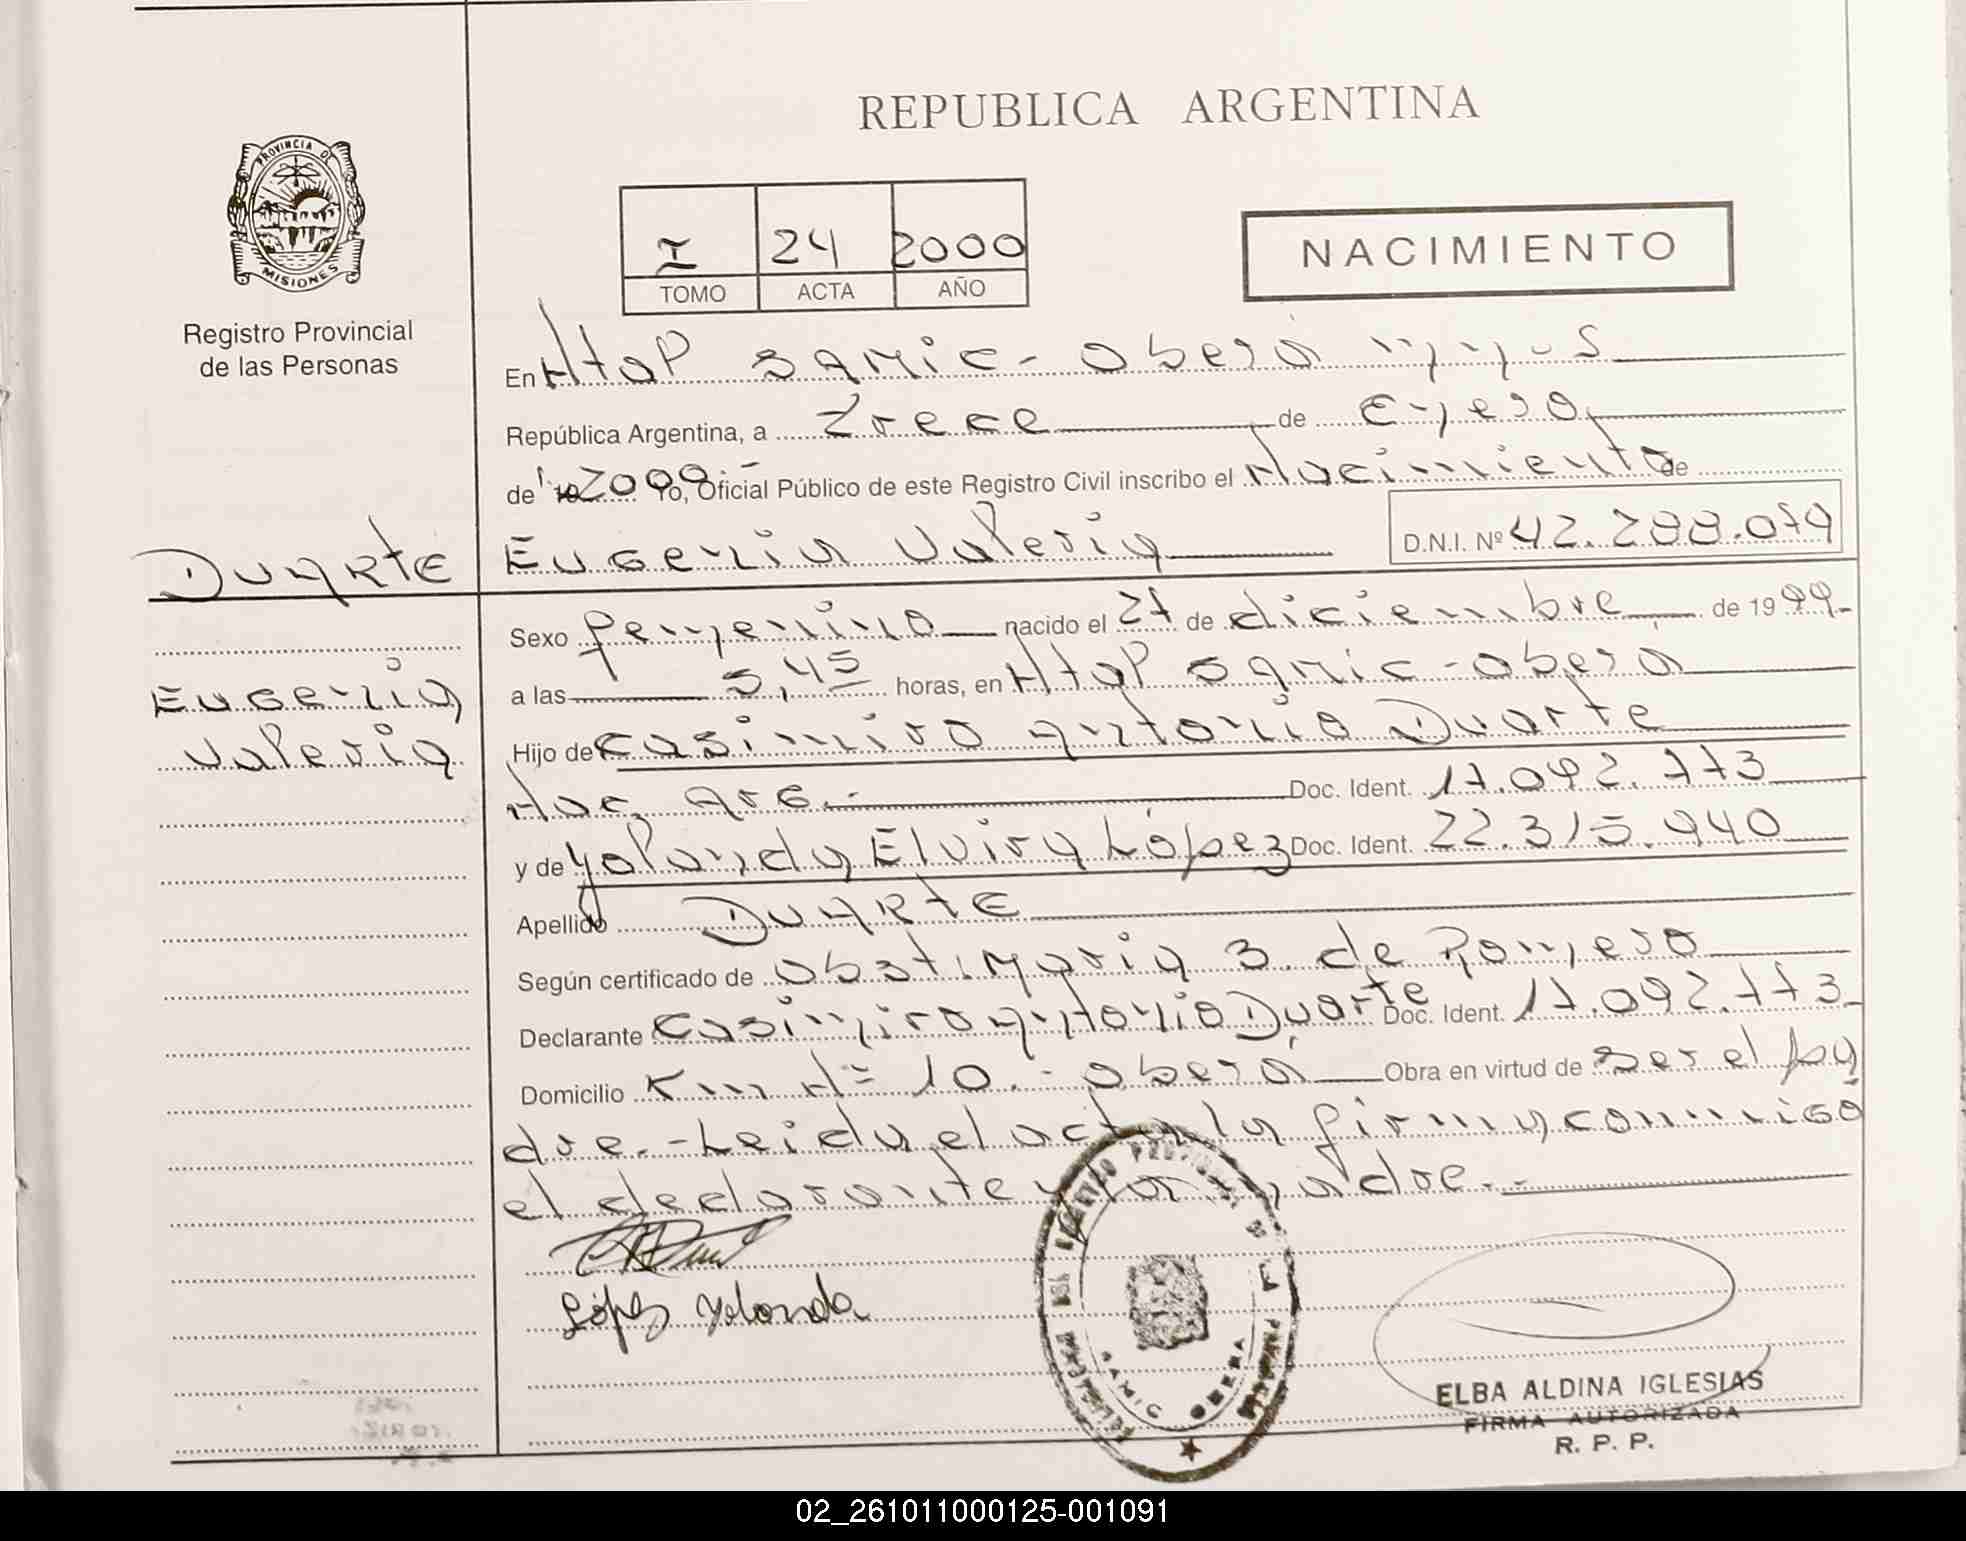 REPUBLICA ARGENTINA
PROVINCIA DE
MISIONES
Registro Provincial
de las Personas
I 24 2000
TOMO ACTA AÑO
NACIMIENTO
En Htal Samic - Oberá Mnes
República Argentina, a Trece de Enero
de 19 2000 Yo, Oficial Público de este Registro Civil inscribo el Nacimiento de
Duarte
Eugenia Valeria D.N.I. Nº 42.288.079
Eugenia
Valeria
Sexo femenino nacido el 27 de diciembre de 19 99.-
a las 5,45 horas, en Htal Samic - Oberá
Hijo de Casimiro Antonio Duarte
Nac. Arg.- Doc. Ident. 17.092.773
y de Yolanda Elvira López Doc. Ident. 22.315.940
Apellido Duarte
Según certificado de Obst. María S. de Romero
Declarante Casimiro Antonio Duarte Doc. Ident. 17.092.773
Domicilio Km Nº 10.- Oberá Obra en virtud de ser el pa
dre.- Leida el acta la firma conmigo
el declarante y la madre.-
López Yolanda
SAMIC OBERA
ELBA ALDINA IGLESIAS
FIRMA AUTORIZADA
R. P. P.
02_261011000125-001091